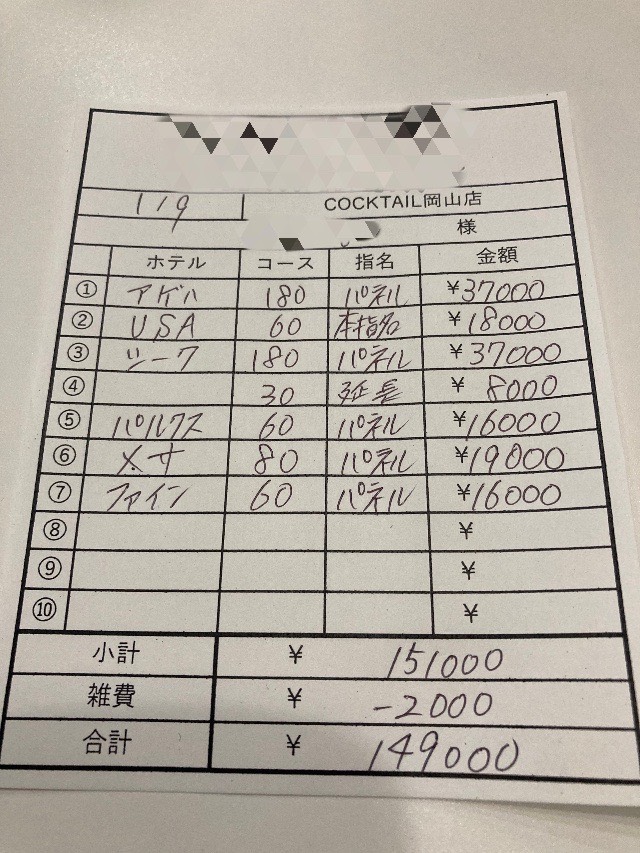 1/9 COCKTAIL岡山店
様
ホテル コース 指名 金額
① アゲハ 180 パネル ¥37000
② USA 60 本指名 ¥18000
③ シーク 180 パネル ¥37000
④ 30 延長 ¥8000
⑤ パルクス 60 パネル ¥16000
⑥ メサ 80 パネル ¥19000
⑦ ファイン 60 パネル ¥16000
⑧ ¥
⑨ ¥
⑩ ¥
小計 ¥ 151000
雑費 ¥ -2000
合計 ¥ 149000